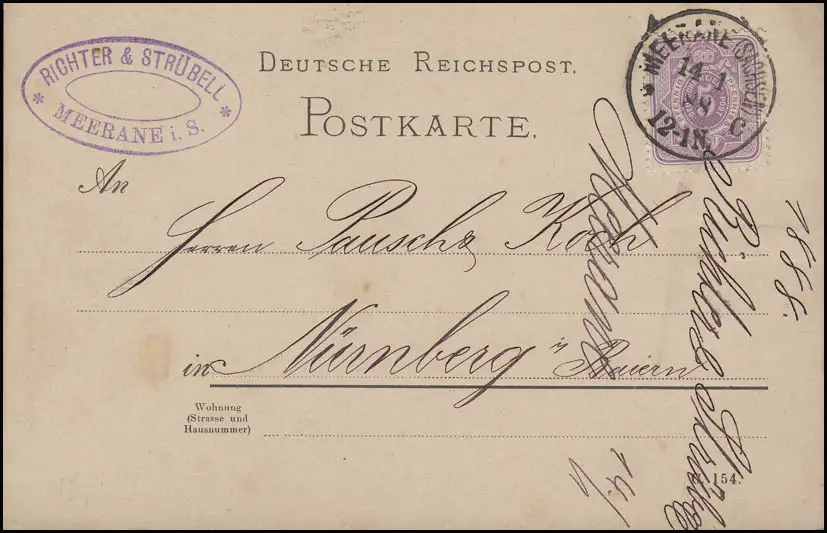 RICHTER & STRÜBELL
* MEERANE i. S. *
DEUTSCHE REICHSPOST.
POSTKARTE.
MEERANE (SACHSEN)
14 1
88
12-1N.
* C
An
Herren Pausch & Koch
in Nürnberg in Baiern
Wohnung
(Strasse und
Hausnummer)
154.
1888.
Richter & Strübell
Meerane
14/1